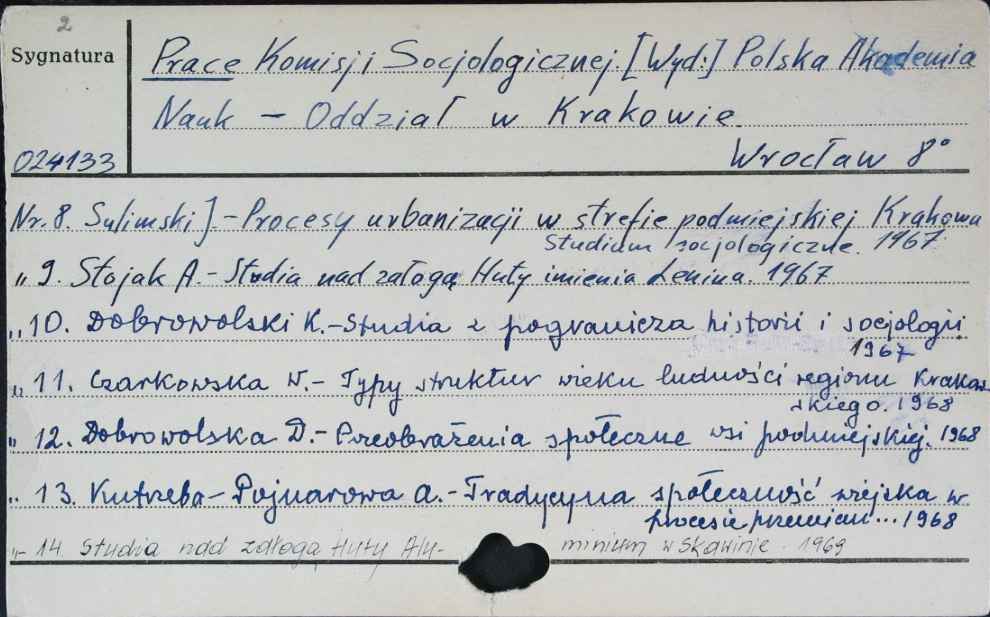 2
Sygnatura
Prace Komisji Socjologicznej. [Wyd:] Polska Akademia
Nauk – Oddział w Krakowie
024133
Wrocław 8°
Nr. 8. Sulimski J. – Procesy urbanizacji w strefie podmiejskiej Krakowa
Studium socjologiczne. 1967
„ 9. Stojak A. – Studia nad załogą Huty imienia Lenina. 1967
„ 10. Dobrowolski K. – Studia z pogranicza historii i socjologii
1967
„ 11. Czarkowska W. – Typy struktur wieku ludności regionu Krakow
skiego. 1968
„ 12. Dobrowolska D. – Przeobrażenia społeczne wsi podmiejskiej. 1968
„ 13. Kutrzeba – Pojnarowa A. – Tradycyjna społeczność wiejska w
procesie przemian... 1968
„ – 14 Studia nad załogą Huty Alu- minium w Skawinie. 1969